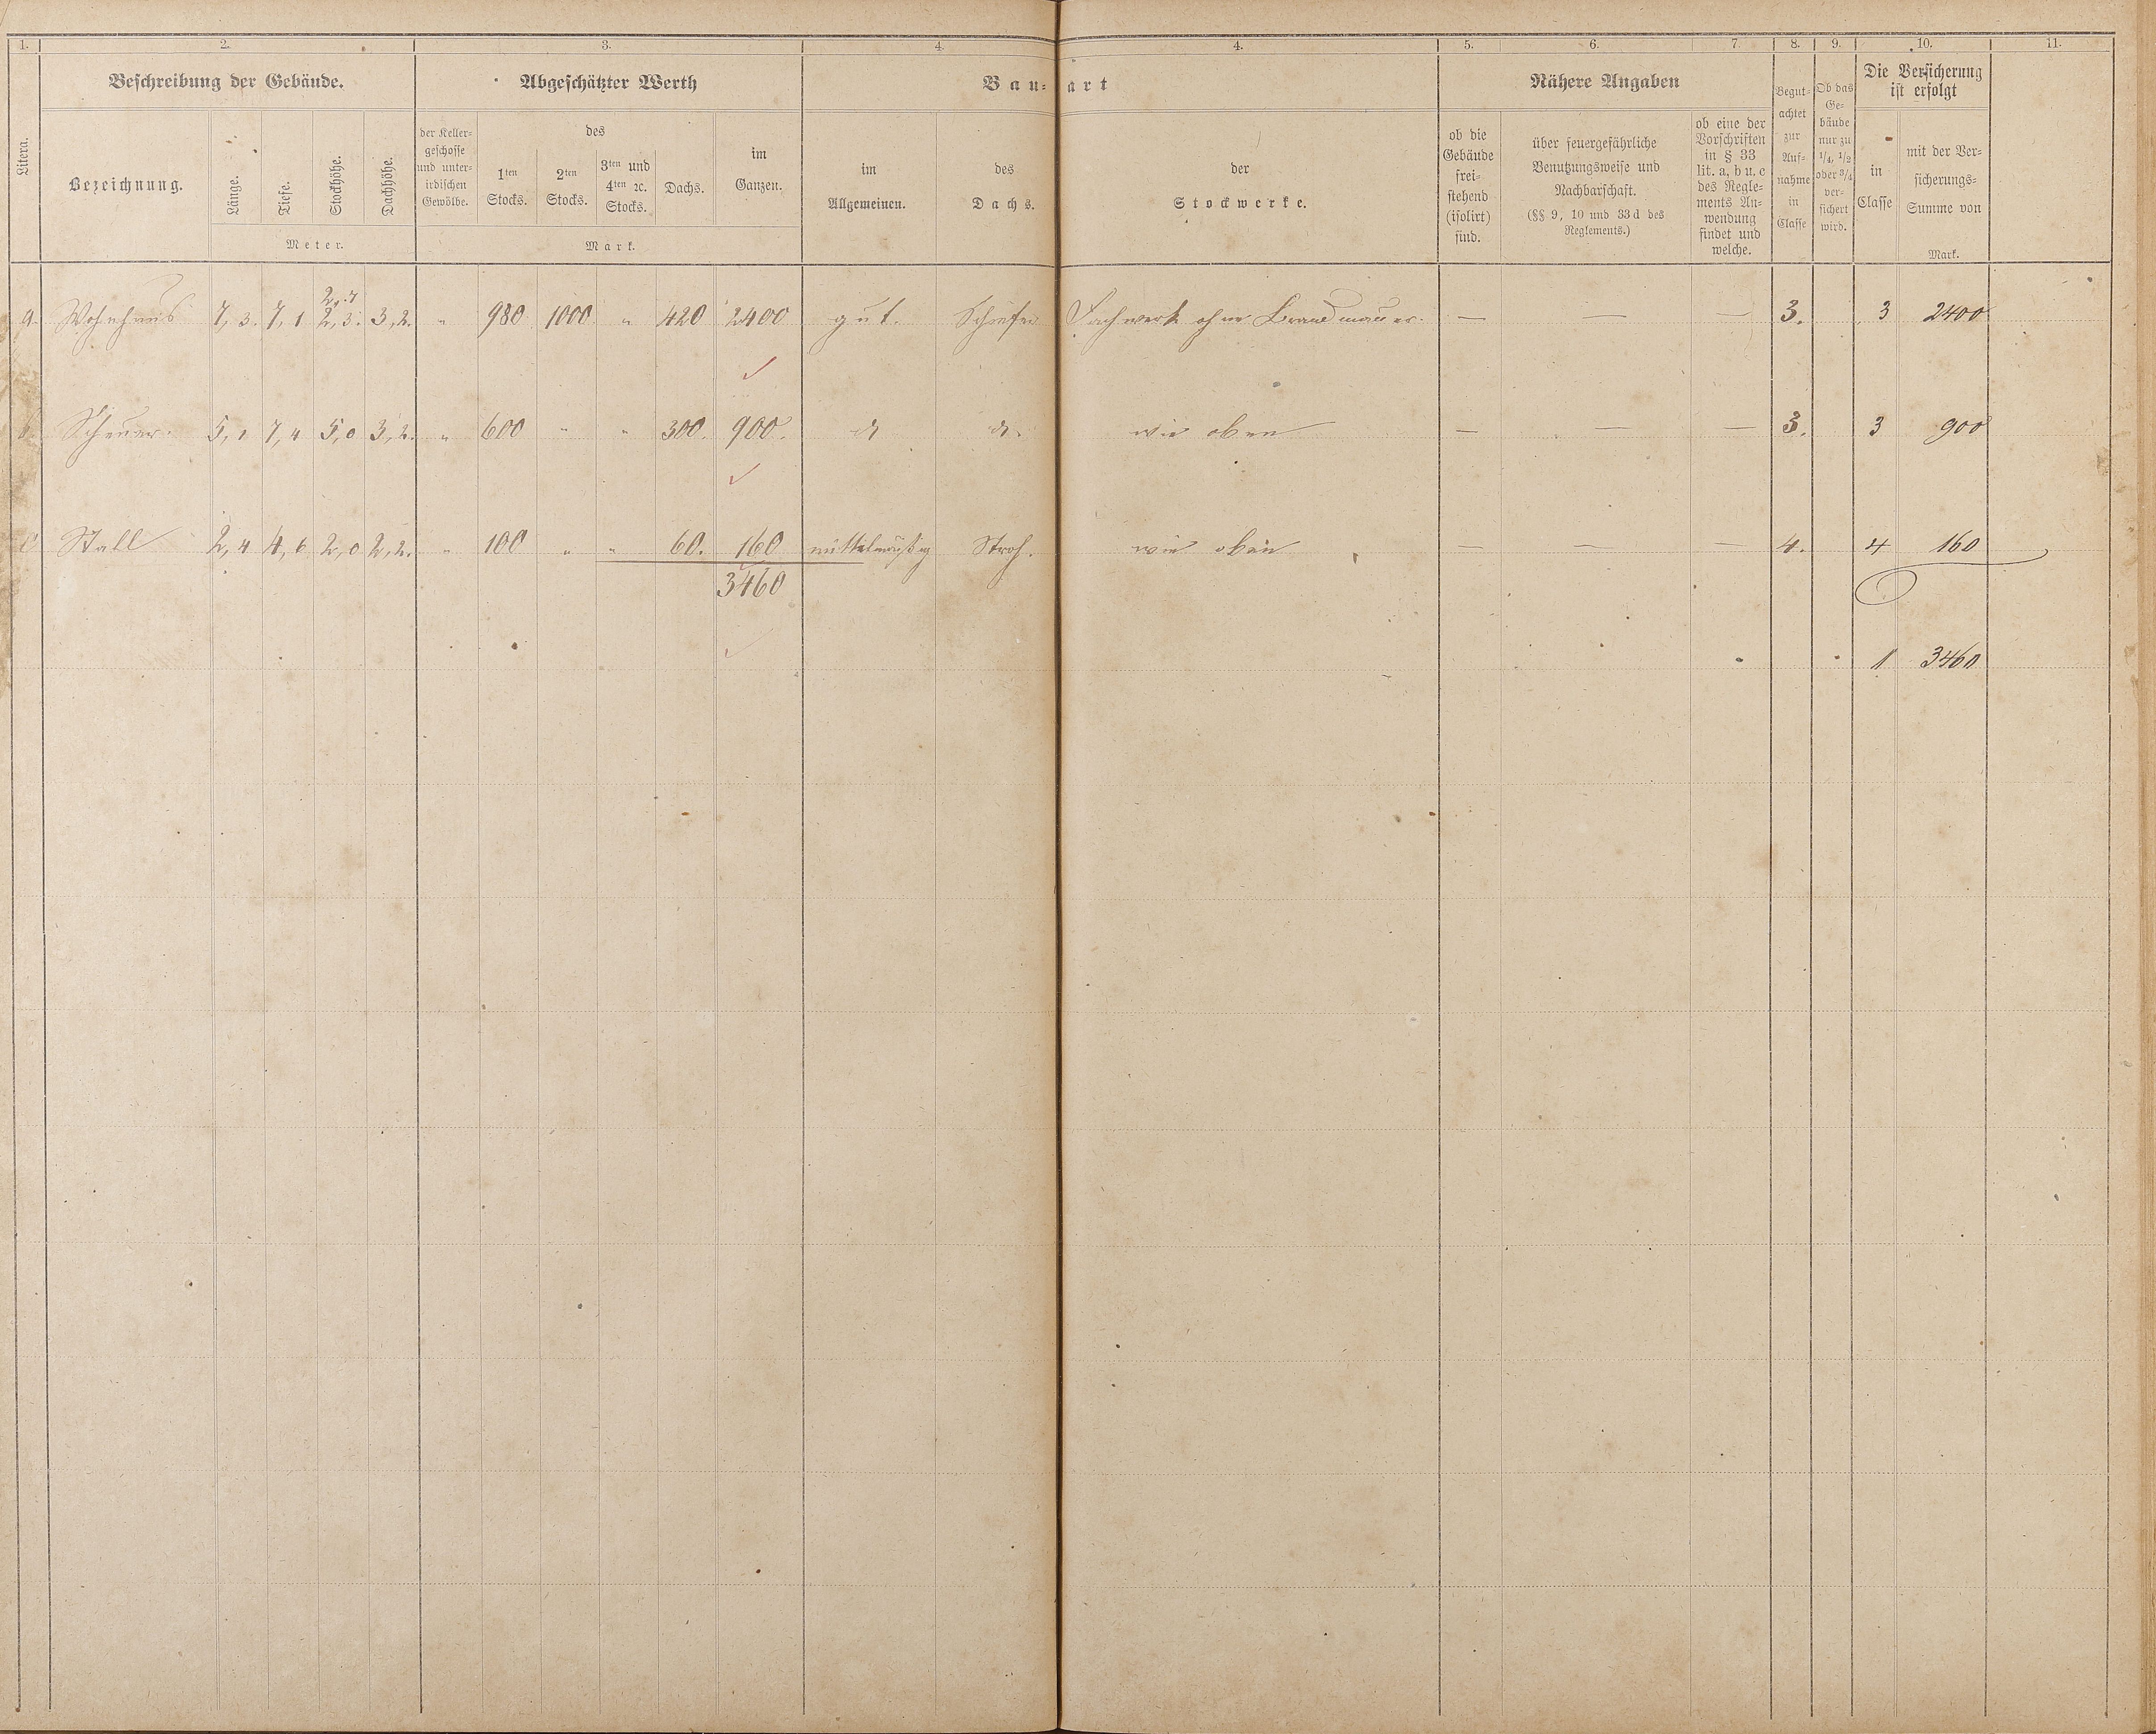 1. 2. 3. 4. 4. 5. 6. 7. 8. 9. 10. 11.
Litera.
Beschreibung der Gebäude.
Bezeichnung.
Länge.
Tiefe.
Stockhöhe.
Dachhöhe.
Meter.
Abgeschätzter Werth
der Keller-
geschosse
und unter-
irdischen
Gewölbe.
des
1ten
Stocks.
2ten
Stocks.
3ten und
4ten ꝛc.
Stocks.
Dachs.
im
Ganzen.
Mark.
Bau-art
im
Allgemeinen.
des
Dachs.
der
Stockwerke.
Nähere Angaben
ob die
Gebäude
frei-
stehend
(isolirt)
sind.
über feuergefährliche
Benutzungsweise und
Nachbarschaft.
(§§ 9, 10 und 33d des
Reglements.)
ob eine der
Vorschriften
in § 33
lit. a, b u. c
des Regle-
ments An-
wendung
findet und
welche.
Begut-
achtet
zur
Auf-
nahme
in
Classe
Ob das
Ge-
bäude
nur zu
1/4, 1/2
oder 3/4
ver-
sichert
wird.
Die Versicherung
ist erfolgt
in
Classe
mit der Ver-
sicherungs-
Summe von
Mark.
2,7
a. Wohnhaus 7,3. 7,1 2,3. 3,2. " 980 1000 " 420 2400 gut. Schiefer Fachwerk ohne Brandmauer. — — — 3. 3 2400
b. Scheuer. 5,1 7,4 5,0 3,2. " 600 " " 300. 900. do do. wie oben — — — 3. 3 900
c Stall 2,4 4,6 2,0 2,2. " 100 " " 60. 160 mittelmäßig Stroh. wie oben — — — 4. 4 160
3460
1 3460